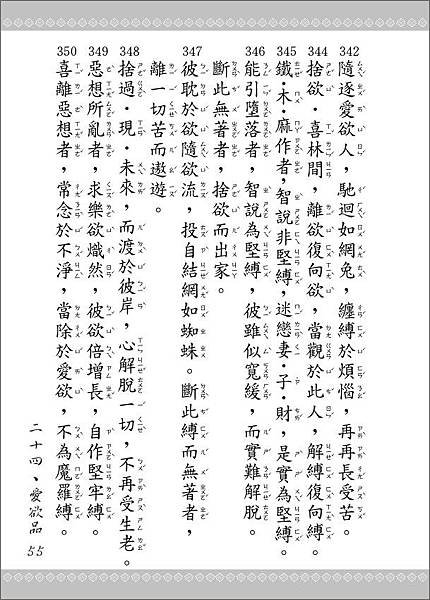 342 隨逐愛欲人，馳迴如網兔，纏縛於煩惱，再再長受苦。
344 捨欲・喜林間，離欲復向欲，當觀於此人，解縛復向縛。
345 鐵・木・麻作者，智說非堅縛，迷戀妻・子・財，是實為堅縛。
346 能引墮落者，智說為堅縛，彼雖似寬緩，而實難解脫。
斷此無著者，捨欲而出家。
347 彼耽於欲隨欲流，投自結網如蜘蛛。斷此縛而無著者，
離一切苦而遨遊。
348 捨過・現・未來，而渡於彼岸，心解脫一切，不再受生老。
349 惡想所亂者，求樂欲熾然，彼欲倍增長，自作堅牢縛。
350 喜離惡想者，常念於不淨，當除於愛欲，不為魔羅縛。
二十四、愛欲品 55